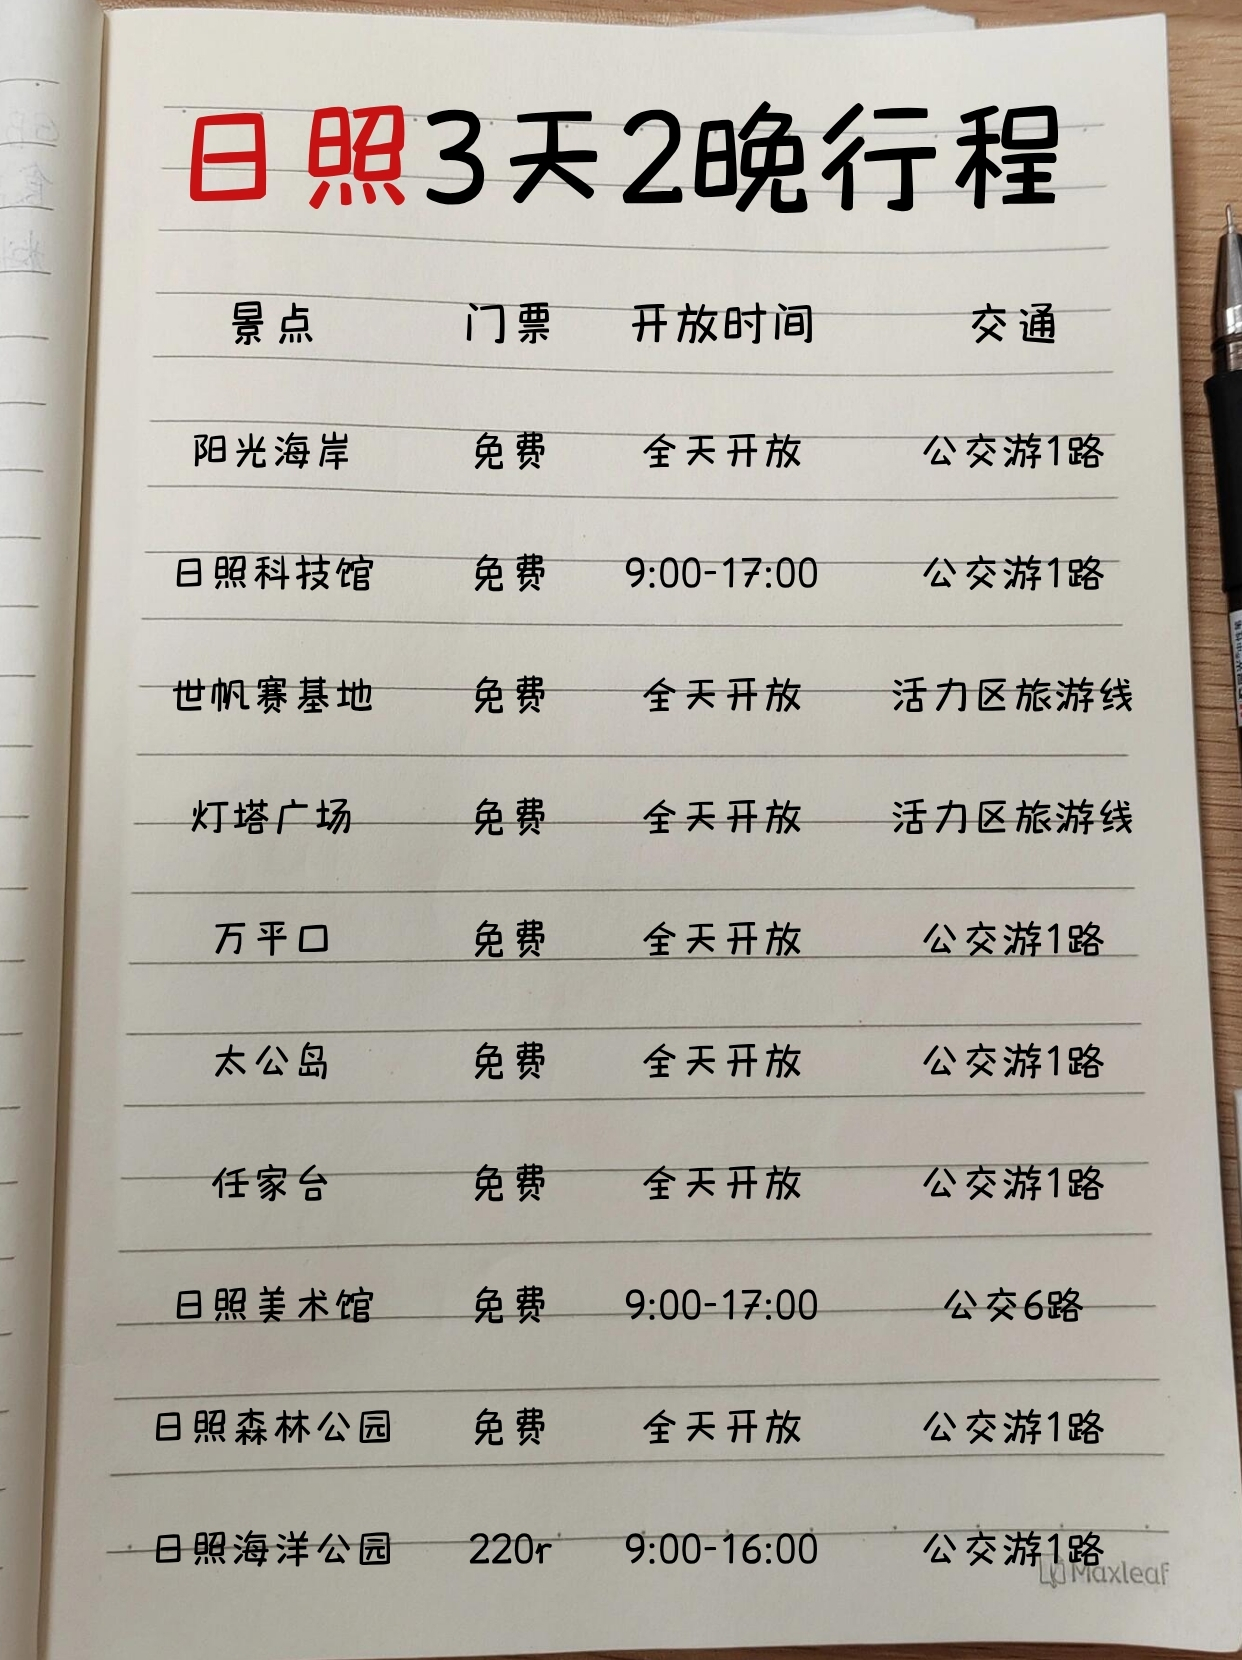 日照3天2晚行程
景点 门票 开放时间 交通
阳光海岸 免费 全天开放 公交游1路
日照科技馆 免费 9:00-17:00 公交游1路
世帆赛基地 免费 全天开放 活力区旅游线
灯塔广场 免费 全天开放 活力区旅游线
万平口 免费 全天开放 公交游1路
太公岛 免费 全天开放 公交游1路
任家台 免费 全天开放 公交游1路
日照美术馆 免费 9:00-17:00 公交6路
日照森林公园 免费 全天开放 公交游1路
日照海洋公园 220r 9:00-16:00 公交游1路
Maxleaf